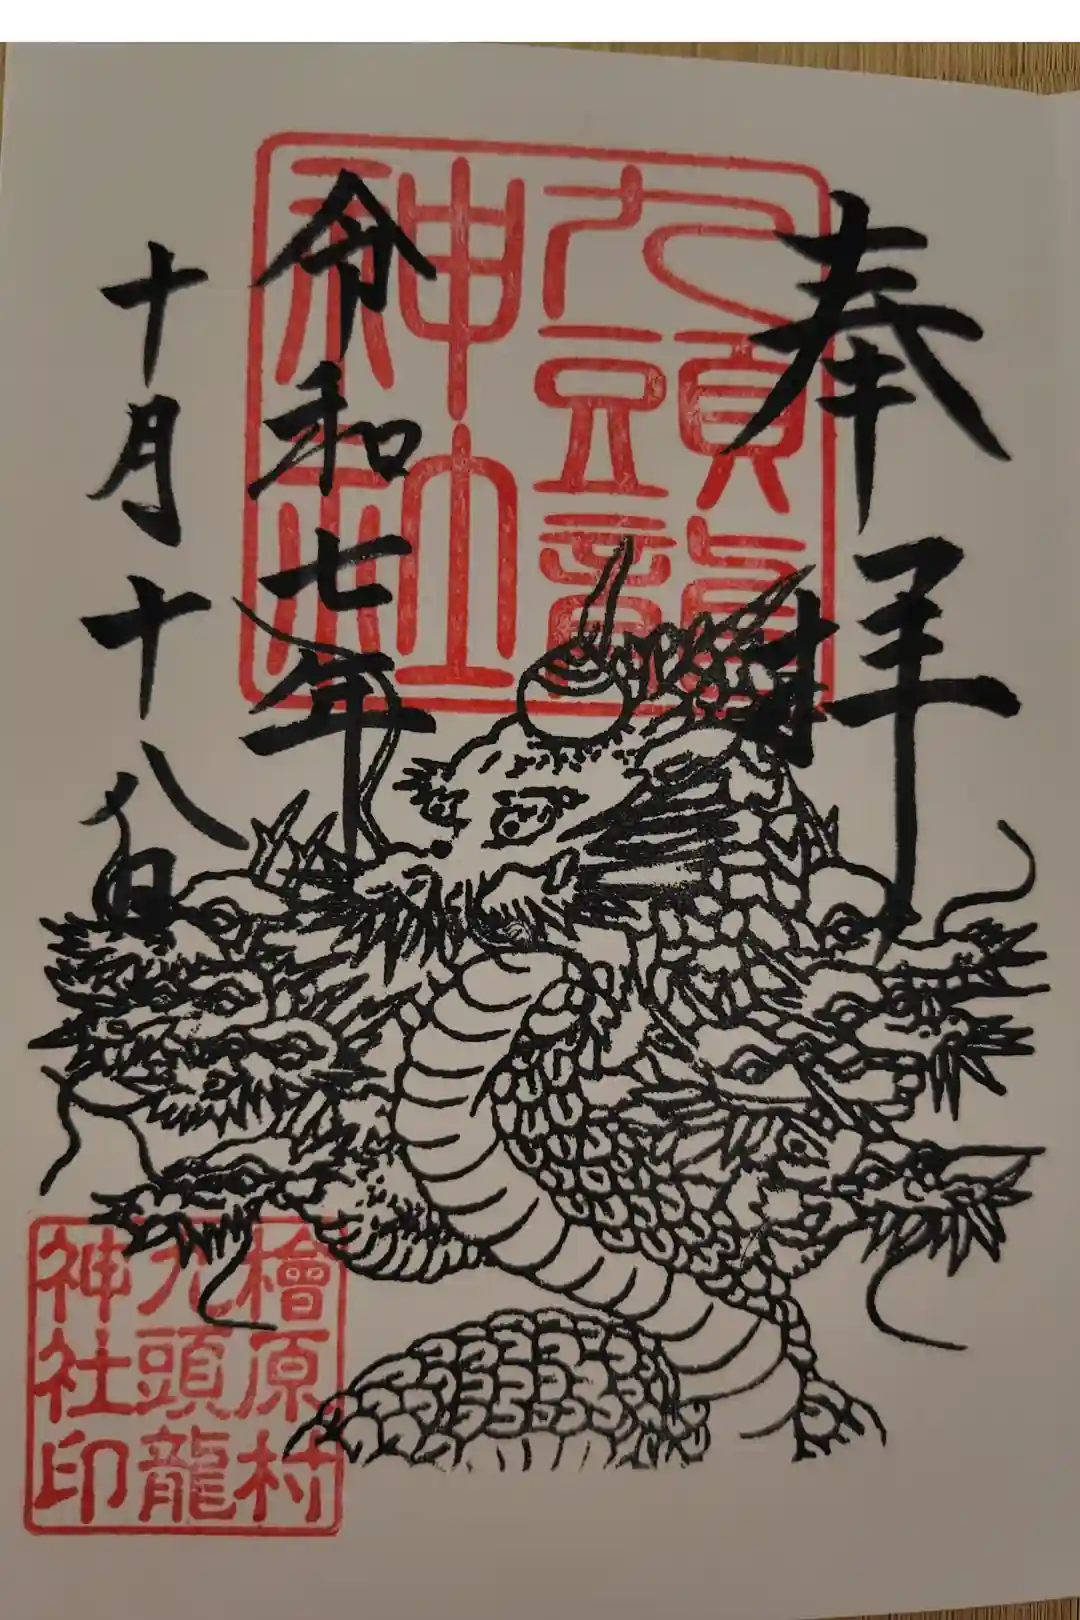 奉拝
九頭龍
神社
令和七年
十月十八日
檜原村
九頭龍
神社印